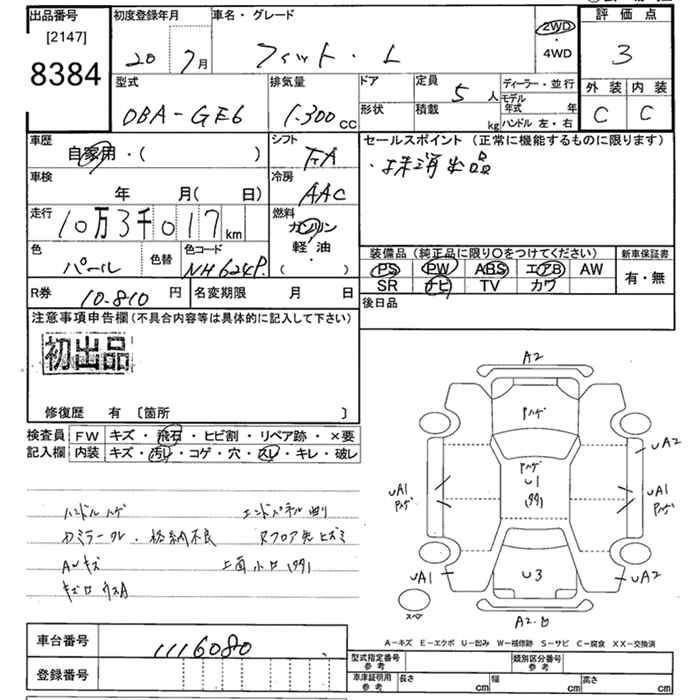 出品番号
[2147]
8384
初度登録年月
20 7月
車名・グレード
フィット・L
2WD
・
4WD
評価点
3
外装 内装
C C
型式
DBA-GE6
排気量
1.300cc
ドア
形状
定員
5人
積載
kg
ディーラー・並行
モデル年式 年
ハンドル 左・右
車歴
自家用・( )
シフト
FA
車検
年 月( 日)
冷房
AAC
走行
10万3千017km
燃料
ガソリン
軽・油
( )
色
パール
色替
色コード
NH624P.
R券
10-810円
名変期限 月 日
セールスポイント(正常に機能するものに限ります)
・抹消出品
装備品(純正品に限り○をつけてください)
PS PW ABS エアB AW
SR ナビ TV カワ
新車保証書
有・無
後日品
注意事項申告欄(不具合内容等は具体的に記入して下さい)
初出品
修復歴 有 [箇所 ]
検査員
記入欄
FW キズ・飛石・ヒビ割・リペア跡・×要
内装 キズ・汚レ・コゲ・穴・スレ・キレ・破レ
ハンドルハゲ
エンドパネル曲リ
格納不良
Rフロア先ヒズミ
AWキズ
A2
Pハゲ
UA2
Pハゲ
U1
UA1
Pハゲ
UA1
Pハゲ
UA1
U3
UA2
スペア
A2.
A-キズ E-エクボ U-凹み W-補修跡 S-サビ C-腐食 XX-交換済
車台番号
1116080
登録番号
型式指定番号
参考
類別区分番号
参考
車庫証明用
参考
長さ cm
幅 cm
高さ cm